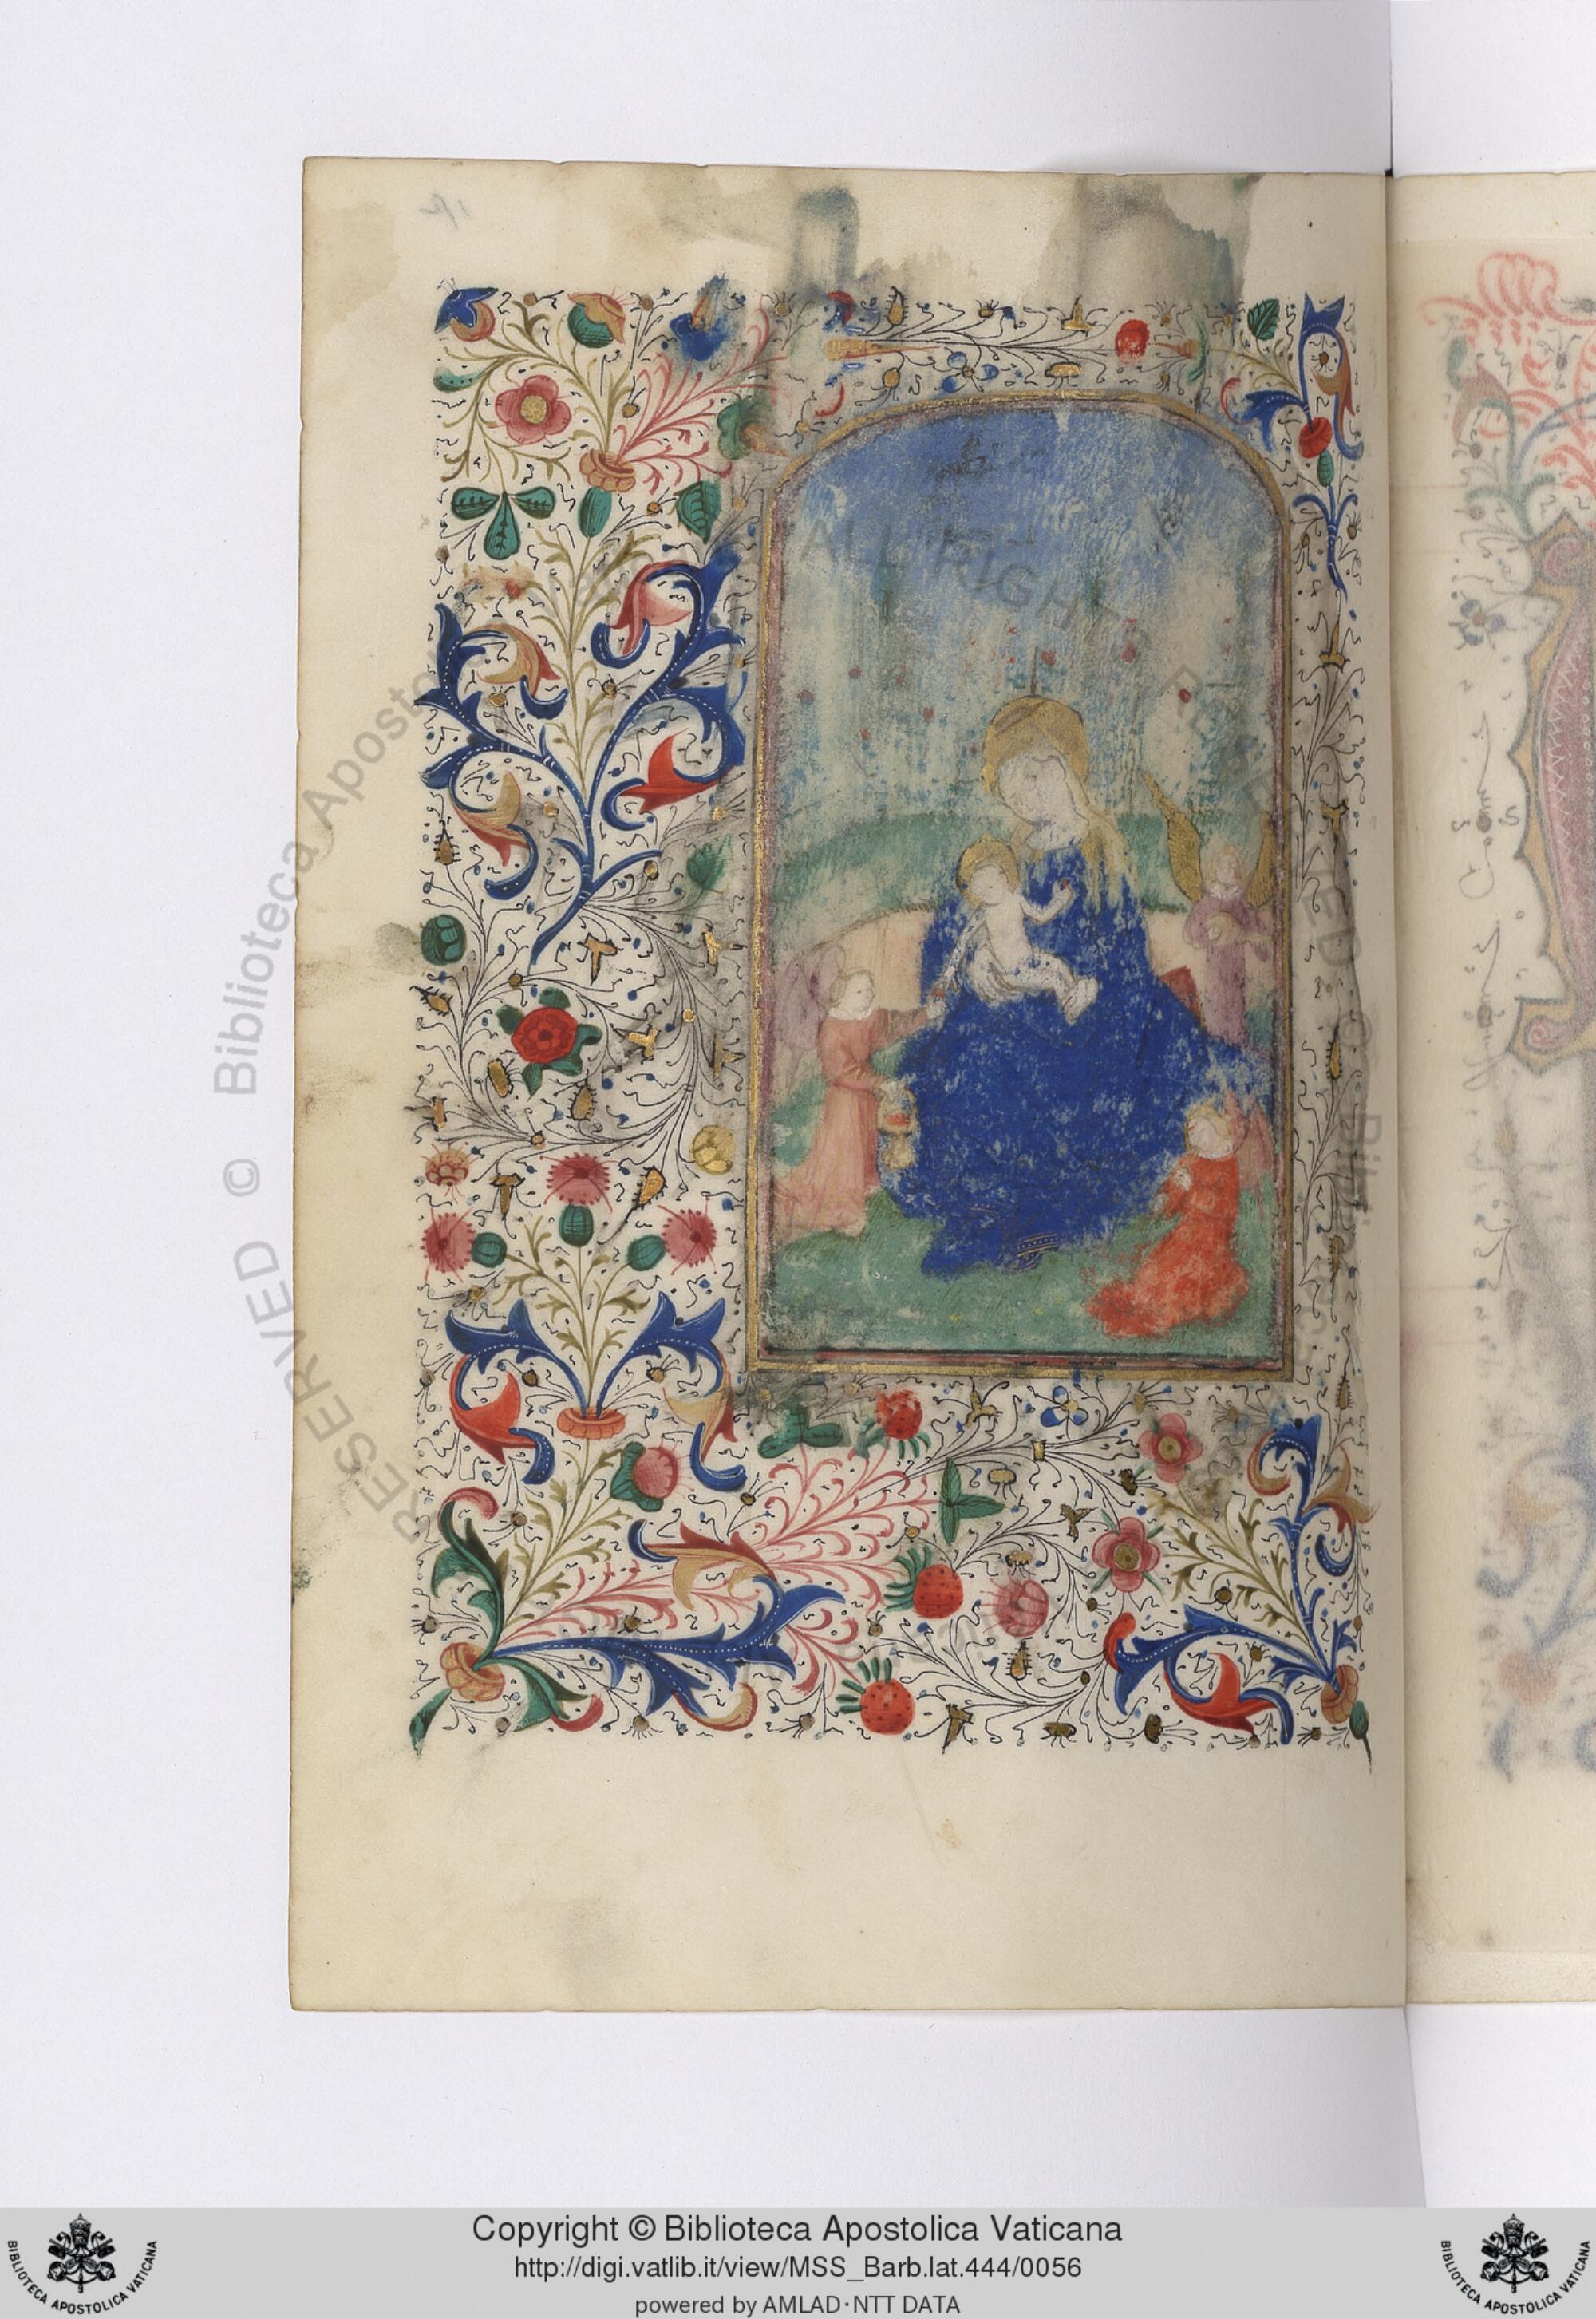 ALL RIGHTS RESERVED © Biblioteca Apostolica Vaticana
RESERVED © Biblioteca Aposto
Copyright © Biblioteca Apostolica Vaticana
http://digi.vatlib.it/view/MSS_Barb.lat.444/0056
powered by AMLAD·NTT DATA
BIBLIOTECA APOSTOLICA VATICANA
BIBLIOTECA APOSTOLICA VATICANA